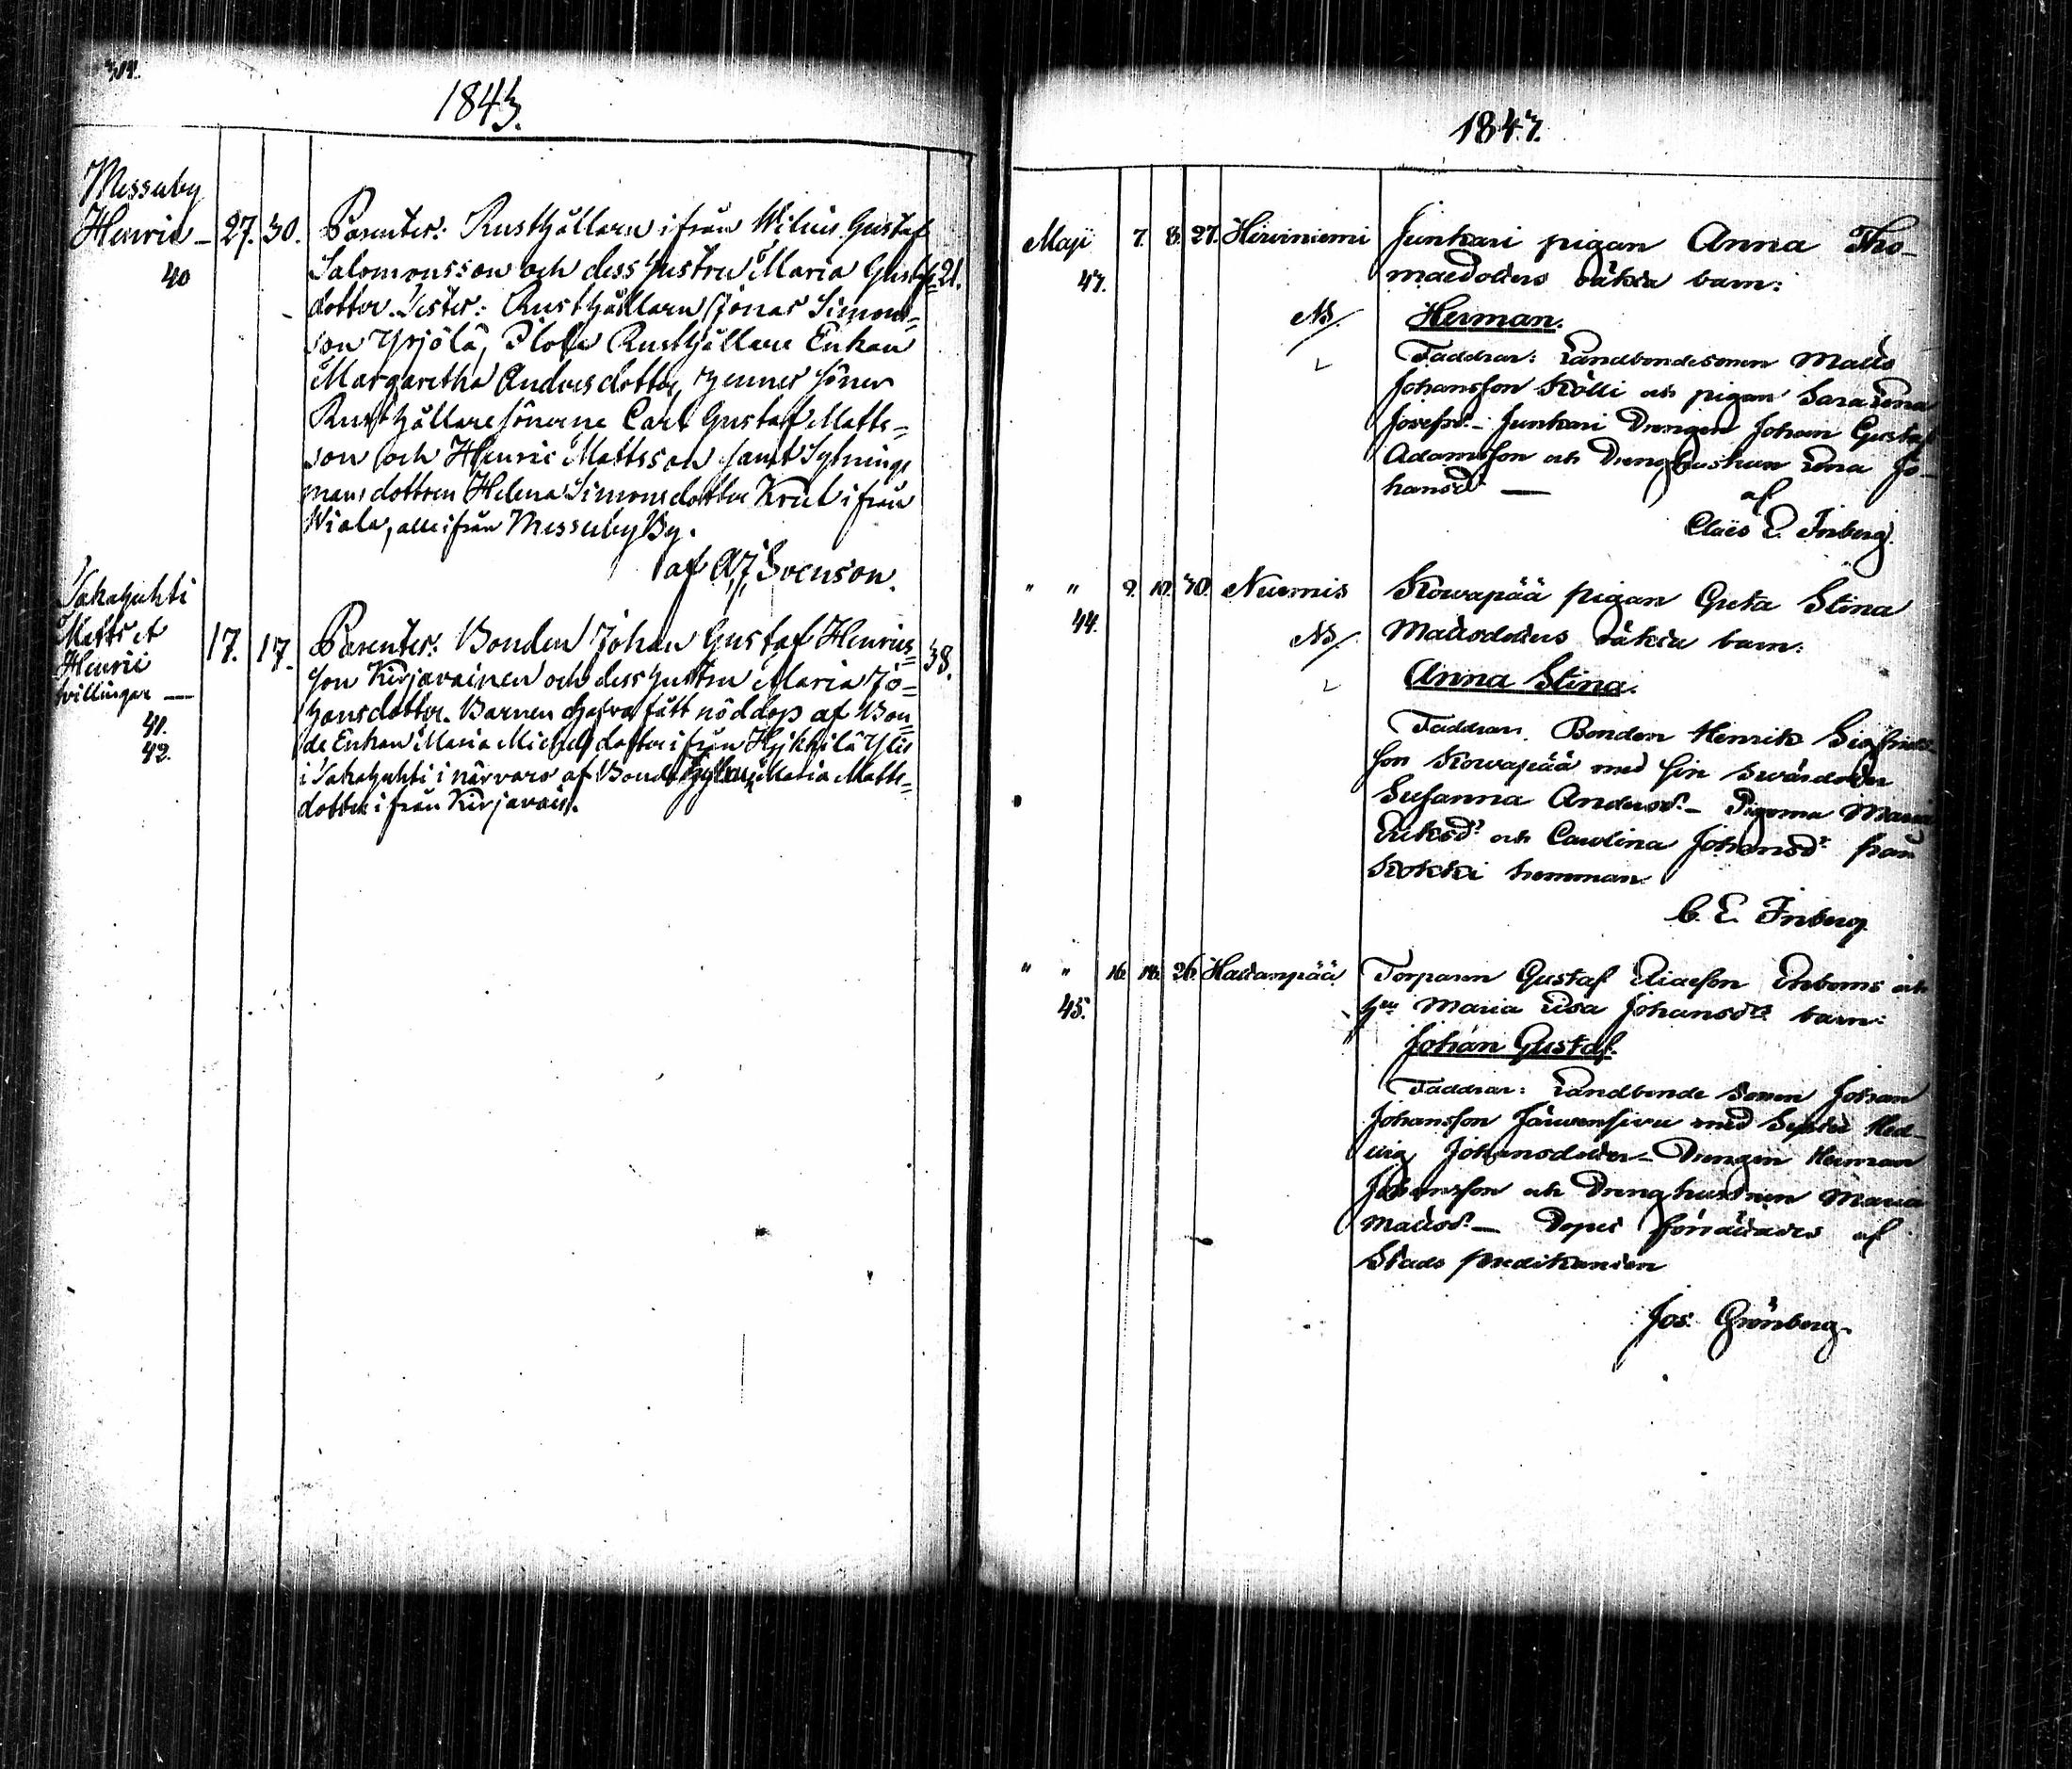 1843.
Messuby
Henric — 27. 30. Parenter: Rusthållaren ifrån Wilus Gustaf
Salomonsson och dess hustru Maria Gustafs 21.
40
dotter. Tester: Rusthållaren Jonas Simons=
son Yrjölä, Rusthållare Enkan
Margaretha Andersdotter, hennes söner
Rusthållaresönerne Carl Gustaf Matts=
son och Henric Mattsson samt
mans dottren Helena Simonsdotter Krut ifrån
Wiala, alle ifrån Messuby By.
af A. J. Svenson.
Takahuhti
Matts et
Henric
tvillingar —
41.
42.
17. 17. Parenter: Bonden Johan Gustaf Henrics= 38.
son Kirjavainen och dess hustru Maria Jo=
hansdotter. Barnen hafva fått nöddop af Bon=
de Enkan Maria Michelsdotter ifrån Hykkilä
i Takahuhti i närvaro af Bonde Maria Matts=
dotter ifrån Kirjavais.
1843.
Maji 7. 8. 27. Hirviniemi Junkari pigan Anna Tho-
43. maedotters oäkta barn:
NB. Herman.
Faddrar: Landbondesonen Matts
Johansson Kölli och pigan Sara Lena
Josefsd. – Junkari Drengen Johan Gustaf
Adamsson och Drenghustrun Lena Jo-
hansdr —
af
Claës E. Inberg.
" " 9. 10. 30. Niemis Kowapää pigan Greta Stina
44. NB. Mattsdotters oäkta barn:
Anna Stina.
Faddrar. Bonden Henrik Sigfrids-
son Kowapää med sin swärdotter
Susanna Andersdr. – Pigorna Maria
Eriksdr och Carolina Johansdr från
Kokki hemman.
C. E. Inberg
" " 16. 18. 26. Hatanpää Torparen Gustaf Eliaeson Enboms och
45. hu Maria Lisa Johansdrs barn:
Johan Gustaf.
Faddrar: Landbonde sonen Johan
Johansson Järwensivu med Hed-
vig Johansdotter – Drengen Herman
Johansson och Dreng hustrun Maria
Mattsdr. – Dopet förrättades af
Stads predikanten
Jos. Grönberg.